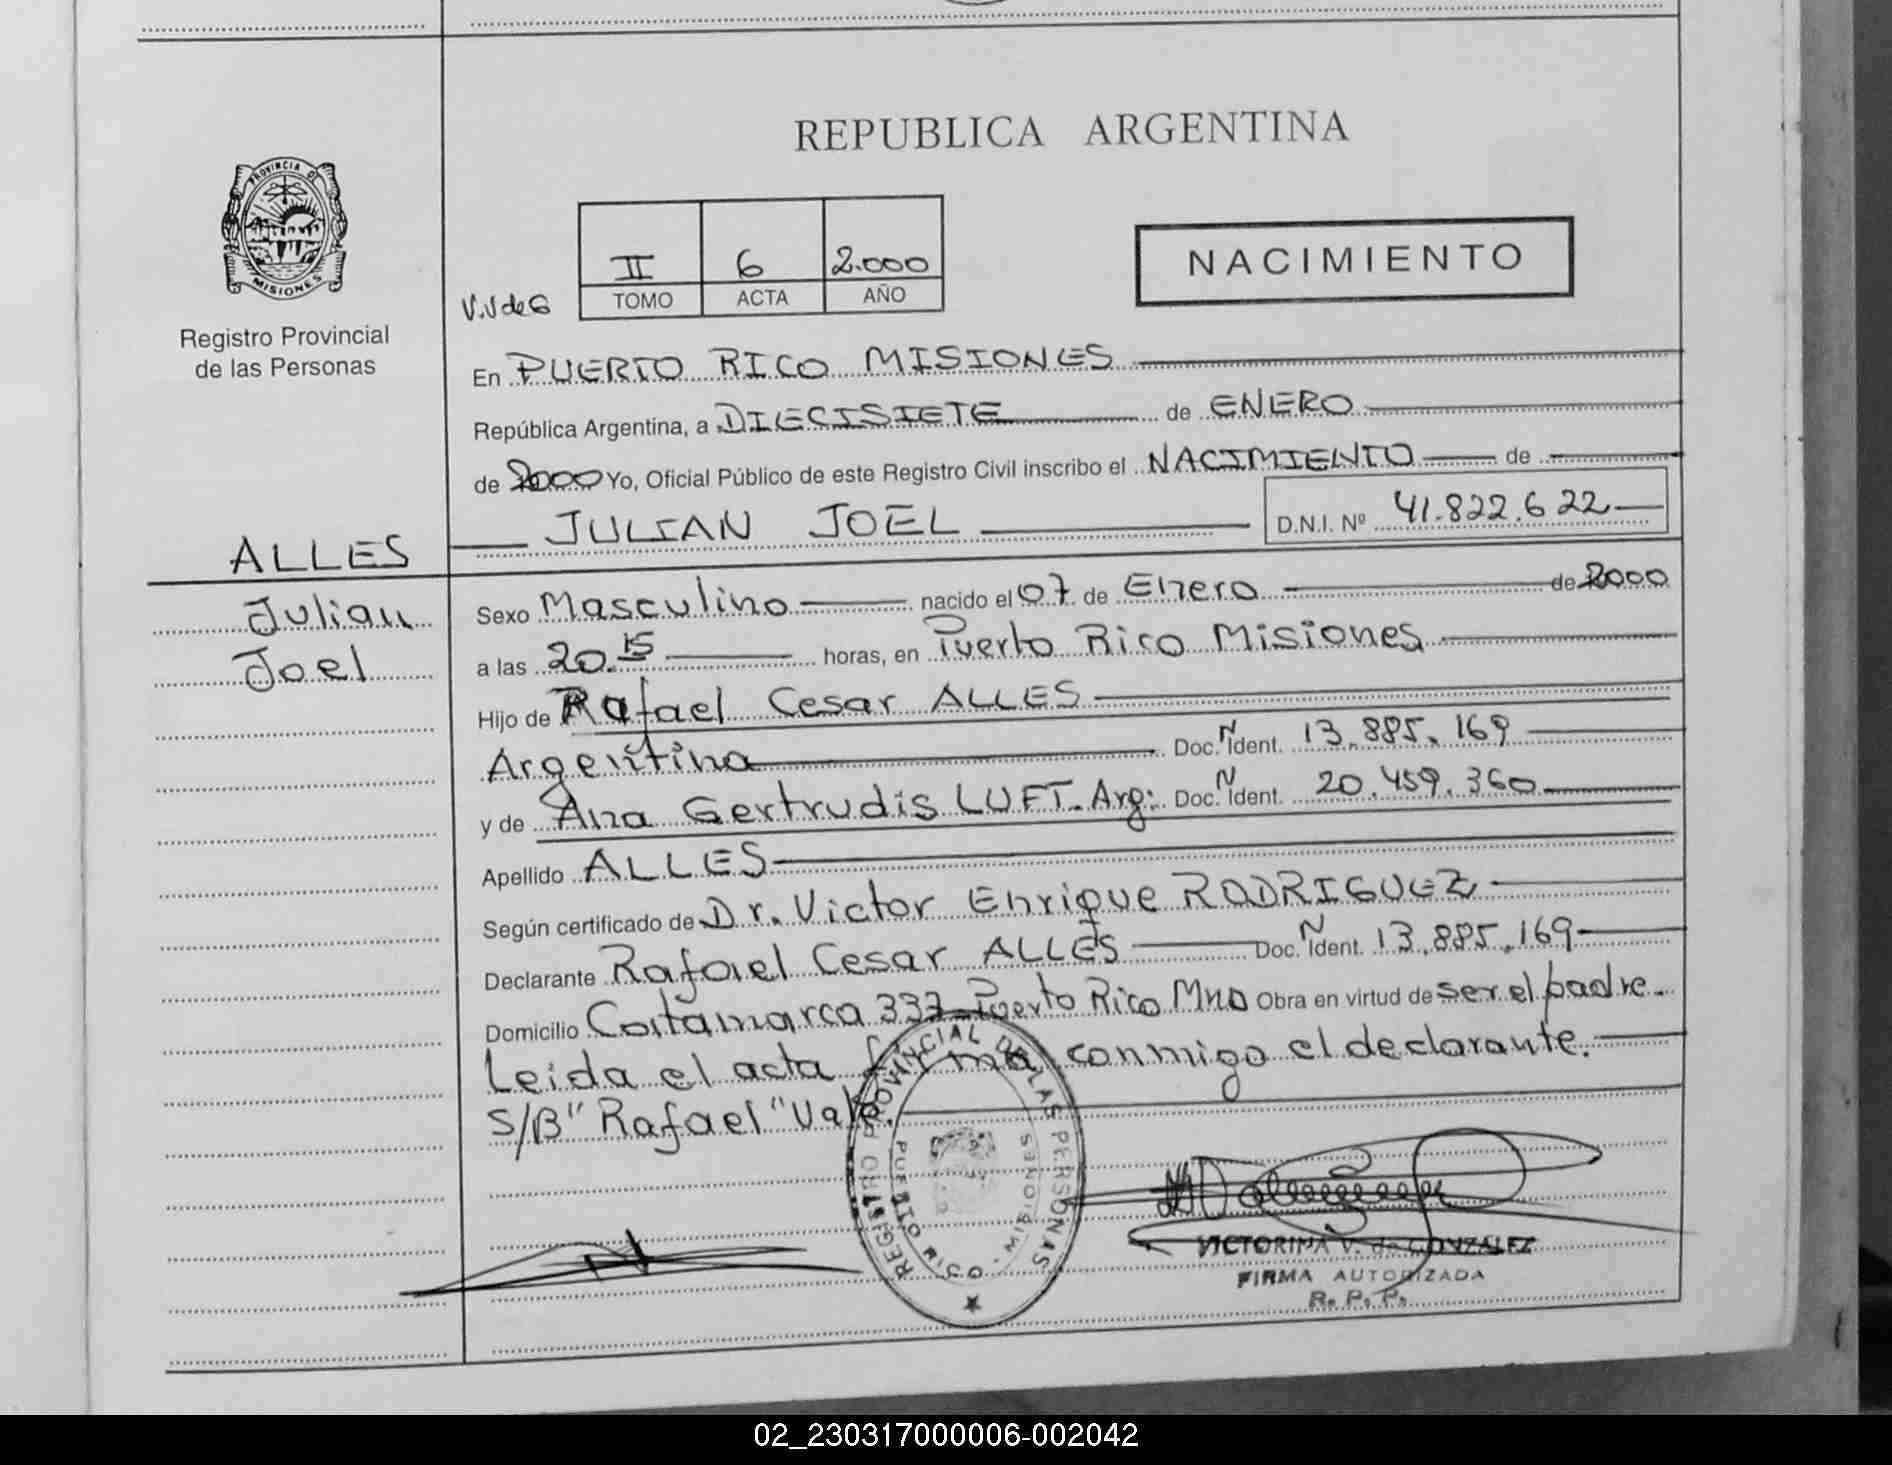 PROVINCIA D
MISIONES
Registro Provincial
de las Personas
REPUBLICA ARGENTINA
II 6 2.000
TOMO ACTA AÑO
V.V de G
NACIMIENTO
En PUERTO RICO MISIONES
República Argentina, a DIECISIETE de ENERO
de 2000 Yo, Oficial Público de este Registro Civil inscribo el NACIMIENTO de
JULIAN JOEL D.N.I. Nº 41.822.622
ALLES
Julian
Joel
Sexo Masculino nacido el 07 de Enero de 2000
a las 20.15 horas, en Puerto Rico Misiones
Hijo de Rafael Cesar ALLES
Argentina Doc. N Ident. 13.885.169
y de Ana Gertrudis LUFT. Arg: Doc. N Ident. 20.459.360
Apellido ALLES
Según certificado de Dr. Victor Enrique RODRIGUEZ
Declarante Rafael Cesar ALLES Doc. N Ident. 13.885.169
Domicilio Catamarca 337 Puerto Rico Mnes Obra en virtud de ser el padre.
Leida el acta firma conmigo el declarante.
S/B "Rafael" Vale.
REGISTRO PROVINCIAL DE LAS PERSONAS
PUERTO RICO - MISIONES
VICTORINA V. de GONZALEZ
FIRMA AUTORIZADA
R. P. P.
02_230317000006-002042